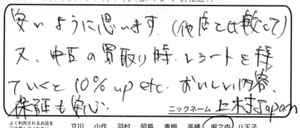 安いように思います。(他店と比較して)
又、中古の買取り時、レシートを持
っていくと10% up etc. おいしい内容。
保証も安心。
ニックネーム 上木村Japan
よく利用されるお店
立川 小作 羽村 昭島 青梅 高幡 堀之内 八王子